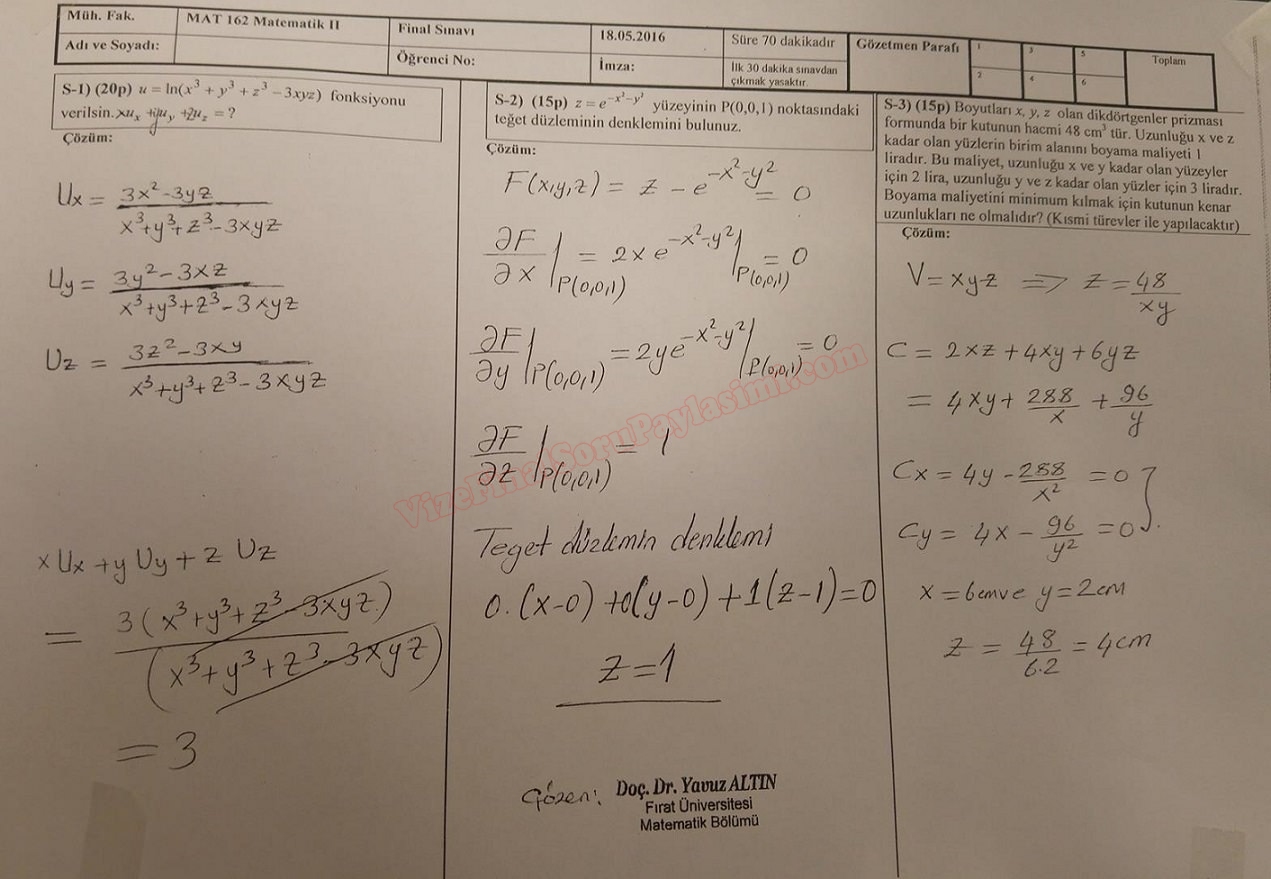 Müh. Fak.
MAT 162 Matematik II
Final Sınavı
18.05.2016
Süre 70 dakikadır
Gözetmen Parafı
1
3
5
Toplam
Adı ve Soyadı:
Öğrenci No:
İmza:
İlk 30 dakika sınavdan
çıkmak yasaktır.
2
4
6
S-1) (20p) u = ln(x³ + y³ + z³ − 3xyz) fonksiyonu
verilsin. xuₓ + yu_y + zu_z = ?
Çözüm:
Ux = 3x²-3yz / x³+y³+z³-3xyz
Uy = 3y²-3xz / x³+y³+z³-3xyz
Uz = 3z²-3xy / x³+y³+z³-3xyz
x Ux + y Uy + z Uz
= 3(x³+y³+z³-3xyz) / (x³+y³+z³-3xyz)
= 3
S-2) (15p) z = e^(-x²-y²) yüzeyinin P(0,0,1) noktasındaki
teğet düzleminin denklemini bulunuz.
Çözüm:
F(x,y,z) = z - e^(-x²-y²) = 0
∂F/∂x |P(0,0,1) = 2x e^(-x²-y²) |P(0,0,1) = 0
∂F/∂y |P(0,0,1) = 2y e^(-x²-y²) |P(0,0,1) = 0
∂F/∂z |P(0,0,1) = 1
Teğet düzlemin denklemi
0.(x-0)+0(y-0)+1(z-1)=0
z=1
Çözen: Doç. Dr. Yavuz ALTIN
Fırat Üniversitesi
Matematik Bölümü
S-3) (15p) Boyutları x, y, z olan dikdörtgenler prizması
formunda bir kutunun hacmi 48 cm³ tür. Uzunluğu x ve z
kadar olan yüzlerin birim alanını boyama maliyeti 1
liradır. Bu maliyet, uzunluğu x ve y kadar olan yüzeyler
için 2 lira, uzunluğu y ve z kadar olan yüzler için 3 liradır.
Boyama maliyetini minimum kılmak için kutunun kenar
uzunlukları ne olmalıdır? (Kısmi türevler ile yapılacaktır)
Çözüm:
V = xyz ⇒ z = 48/xy
C = 2xz + 4xy + 6yz
= 4xy + 288/x + 96/y
Cx = 4y - 288/x² = 0
Cy = 4x - 96/y² = 0
x = 6cm ve y = 2cm
z = 48/6.2 = 4cm
VizeFinalSoruPaylasimi.com